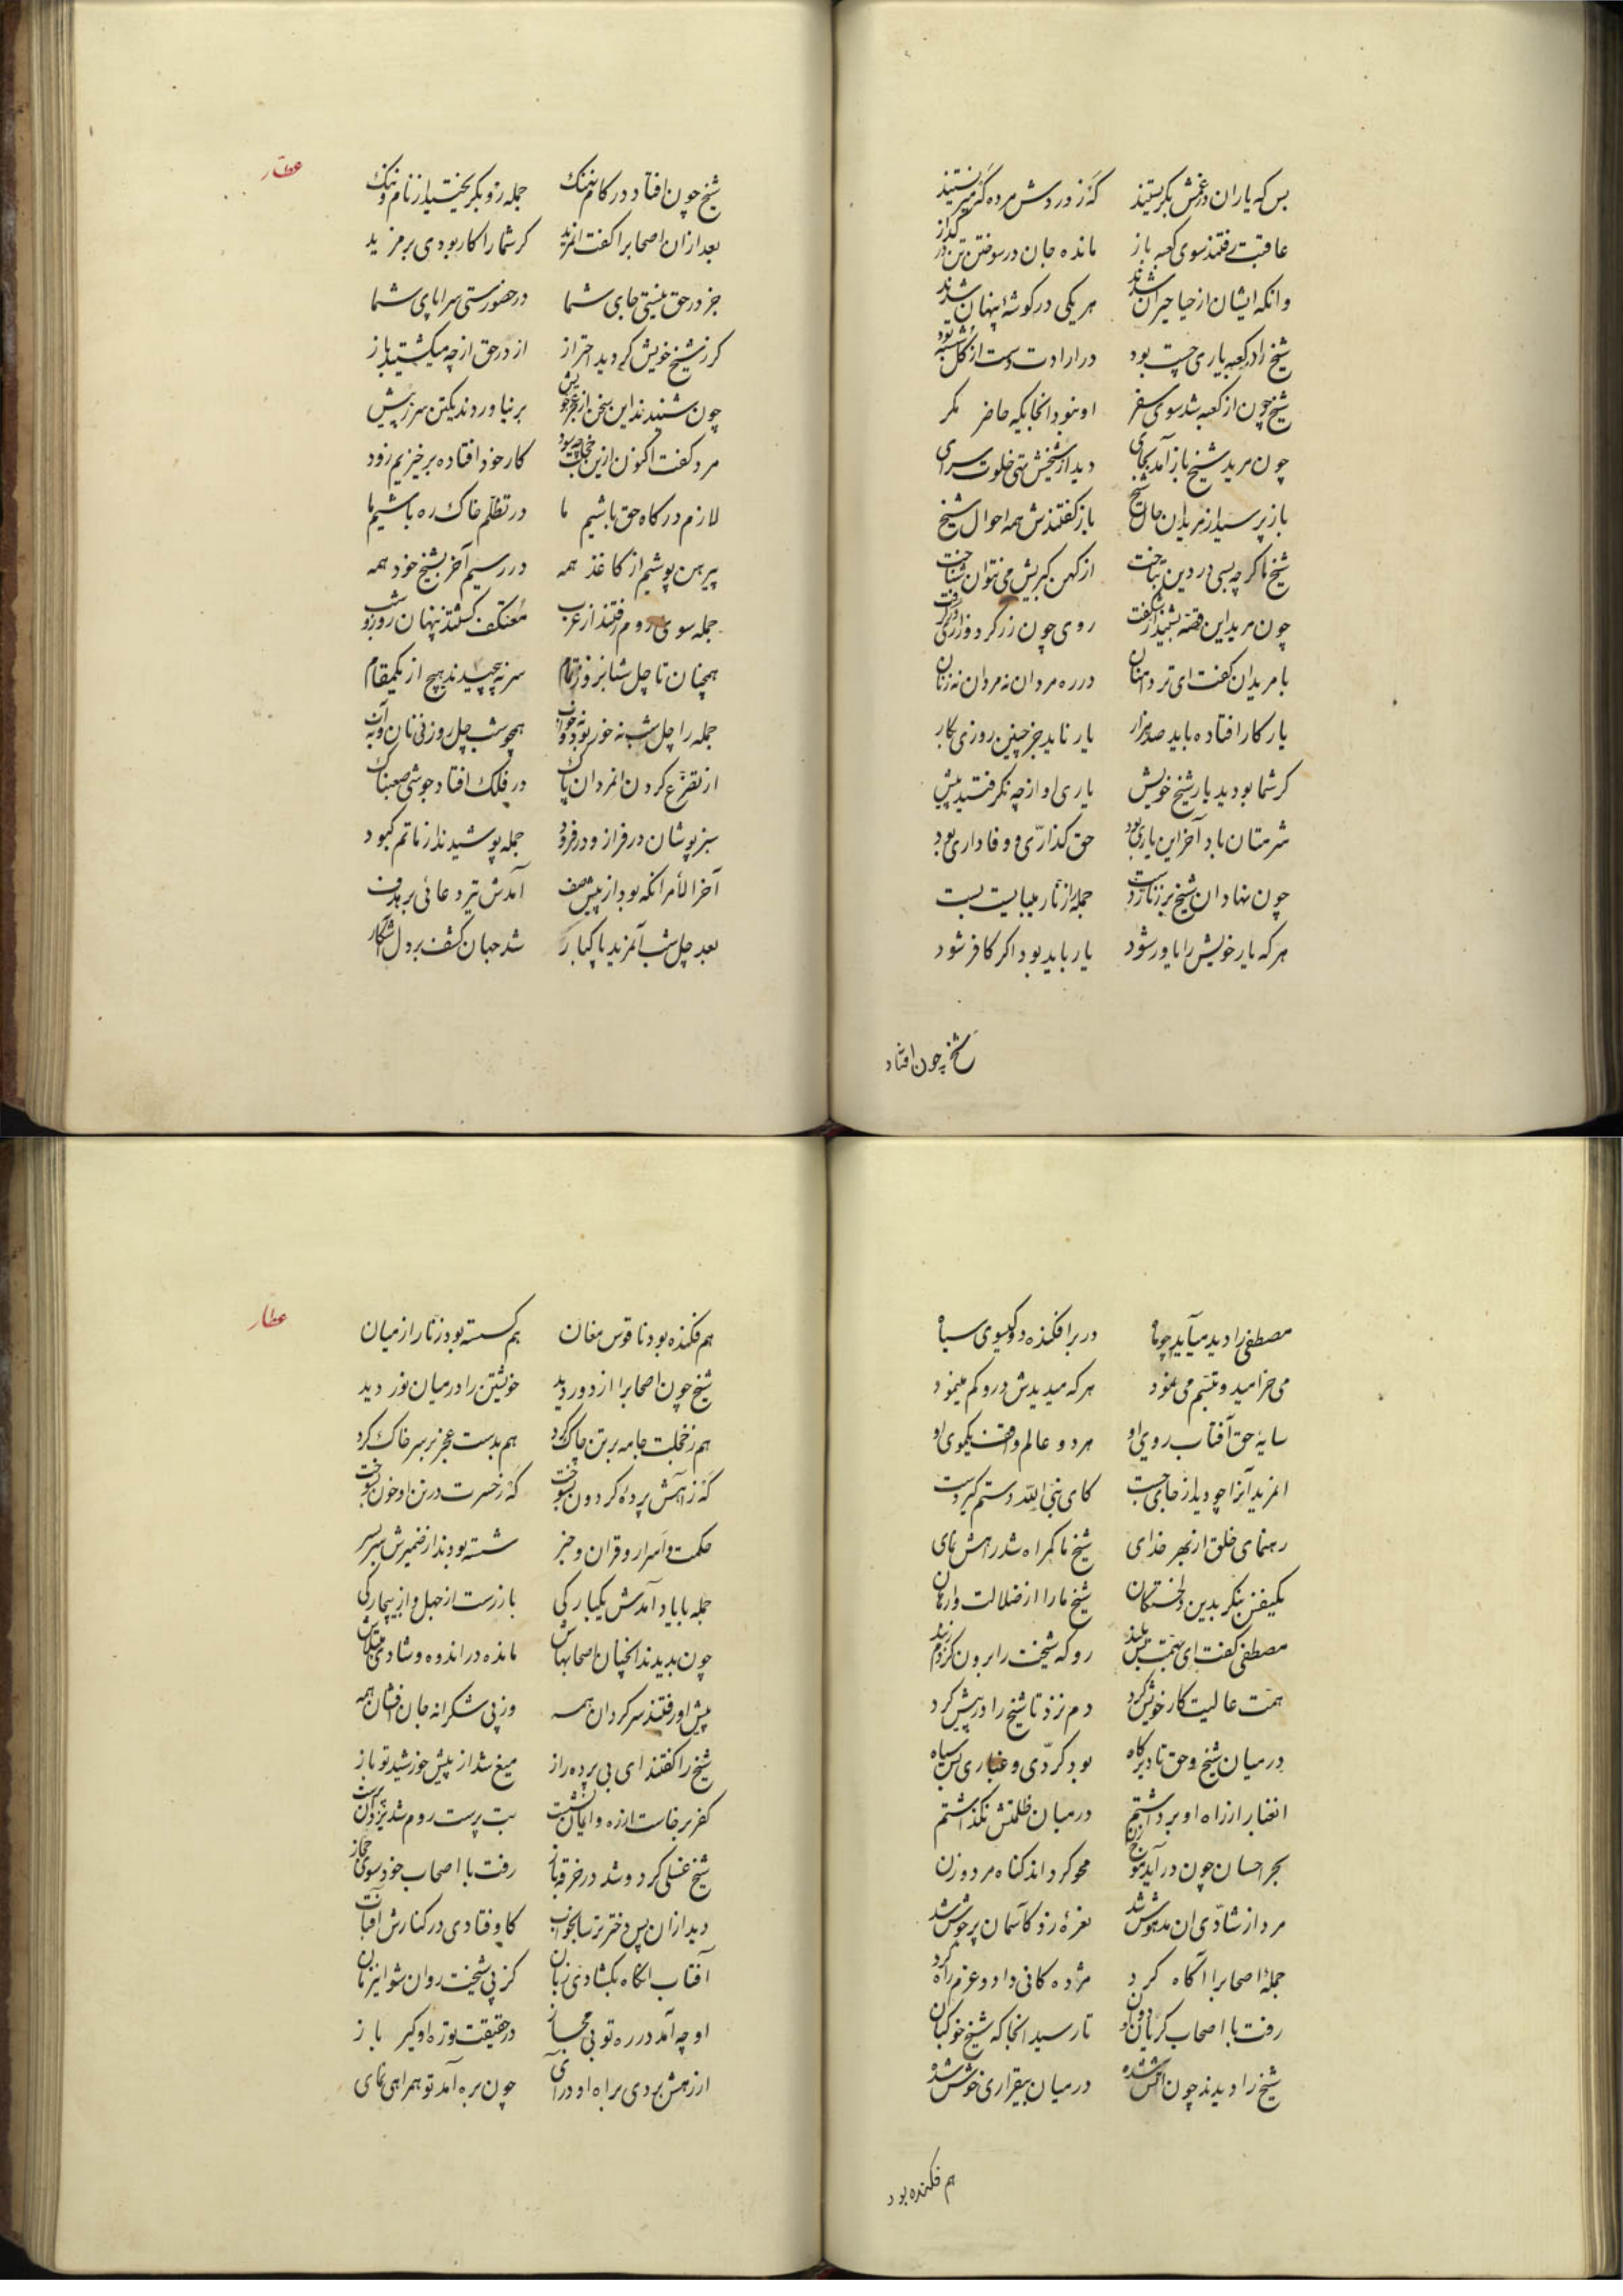 بس که یاران در غمش بگریستند که ز دردش مرده گه میزیستند
عاقبت رفتند سوی کعبه باز مانده جان در سوختن تن در گداز
وانکه ایشان از حیا حیران شدند هر یکی در گوشهٔ پنهان شدند
شیخ را در کعبه یاری چست بود در ارادت دست از کل شسته بود
شیخ چون از کعبه شد سوی سفر او نبود انجایکه حاضر مکر
چون مرید شیخ باز آمد بجای دید از شیخش تهی خلوت سرای
باز پرسید از مریدان حال شیخ باز گفتندش همه احوال شیخ
شیخ ما کرچه بسی در دین بتاخت از کهن کبریش می نتوان شناخت
چون مرید این قصه بشنید از شکفت روی چون زر کرد و زاری درکرفت
با مریدان کفت ای تر دامنان در ره مردان نه مردان نه زنان
یار کار افتاده باید صد هزار یار ناید جز چنین روزی بکار
کر شما بودید یار شیخ خویش یاری او از چه نکرفتید پیش
شرمتان باد آخر این یاری بود حق کذاری و وفاداری بود
چون نهاد ان شیخ بر زنار دست جمله را زنار میبایست بست
هر که یار خویش را یاور شود یار باید بود اکر کافر شود
شیخ چون افتاد
عطار
شیخ چون افتاد در کام نهنک جمله زو بکریختید از نام و ننک
بعد از ان اصحابرا کفت انمرید کر شما را کار بودی بر مزید
جز در حق نیستی جای شما در حضورستی سراپای شما
کر ز شیخ خویش کردید احتراز از در حق از چه میکشتید باز
چون شنیدند این سخن از عجز خویش برنیاوردند یکتن سر ز پیش
مرد کفت اکنون ازین خجلت چه سود کار خود افتاده برخیزیم زود
لازم درکاه حق باشیم ما در تظلم خاک ره باشیم ما
پیرهن پوشیم از کاغذ همه در رسیم آخر بشیخ خود همه
جمله سوی روم رفتند از عرب معتکف کشتند پنهان روز و شب
همچنان تا چل شبانروز تمام سر نه پیچیدند هیچ از یکمقام
جمله را چل شب نه خور بود و نه خواب همچو شب چل روز نی نان و نه آب
از تضرع کردن انمردان پاک در فلک افتاد جوشی صعبناک
سبز پوشان در فراز و در فرود جمله پوشیدند از ماتم کبود
آخر الامر انکه بود از پیش صف آمدش تیر دعائی بر هدف
بعد چل شب آنمرید پاکباز شد جهان کشف بر دل آشکار
مصطفی را دید میآید چو ماه در بر افکنده دو کیسوی سیاه
می خرامید و تبسم می نمود هر که میدیدش درو کم مینمود
سایهٔ حق آفتاب روی او هر دو عالم وقف یکموی او
انمرید آنرا چو دید از جای جست کای نبی الله دستم کیر دست
رهنمای خلق از بهر خدای شیخ ما کمراه شد راهش نمای
یکنفس بنکر بدین دلخستکان شیخ ما را از ضلالت وارهان
مصطفی کفت ای بهمت بس بلند رو که شیخت را برون کردم ز بند
همت عالیت کار خویش کرد دم نزد تا شیخ را در پیش کرد
در میان شیخ و حق تا دیرکاه بود کردی و غباری بس سیاه
انغبار از راه او برداشتم در میان ظلمتش نکذاشتم
بحر احسان چون در آید موج زن محو کرداند کناه مرد و زن
مرد از شادی ان مدهوش شد نعرهٔ زد کآسمان پر جوش شد
جملهٔ اصحابرا آکاه کرد مژده کانی داد و عزم راه کرد
رفت با اصحاب کریان و دوان تا رسید انجا که شیخ خوکبان
شیخ را دیدند چون آتش شده در میان بیقراری خوش شده
هم فکنده بود
عطار
هم فکنده بود ناقوس مغان هم کسسته بود زنار از میان
شیخ چون اصحابرا از دور دید خویشتن را در میان نور دید
هم ز خجلت جامه بر تن چاک کرد هم بدست عجز بر سر خاک کرد
که ز آهش پردهٔ کردون بسوخت که ز حسرت در تن او خون بسوخت
حکمت و اسرار و قران و خبر شسته بودند از ضمیرش سر بسر
جمله با یاد آمدش یکبارکی باز رست از جهل و از بیچارکی
چون بدیدند انچنان اصحابهاش مانده در اندوه و شادی مبتلاش
پیش او رفتند سرکردان همه وز پی شکرانه جان افشان همه
شیخ را کفتند ای بی پرده راز میغ شد از پیش خورشید تو باز
کفر برخاست از ره و ایمان نشست بت پرست روم شد یزدان پرست
شیخ غسلی کرد و شد در خرقه باز رفت با اصحاب خود سوی حجاز
دید از ان پس دختر ترسا بخواب کاوفتادی در کنارش آفتاب
آفتاب انکاه بکشادی زبان کز پی شیخت روان شو اینزمان
او چه آمد در ره تو بی مجاز در حقیقت تو ره او کیر باز
از رهش بردی براه او درآی چون بره آمد تو همراهی نمای